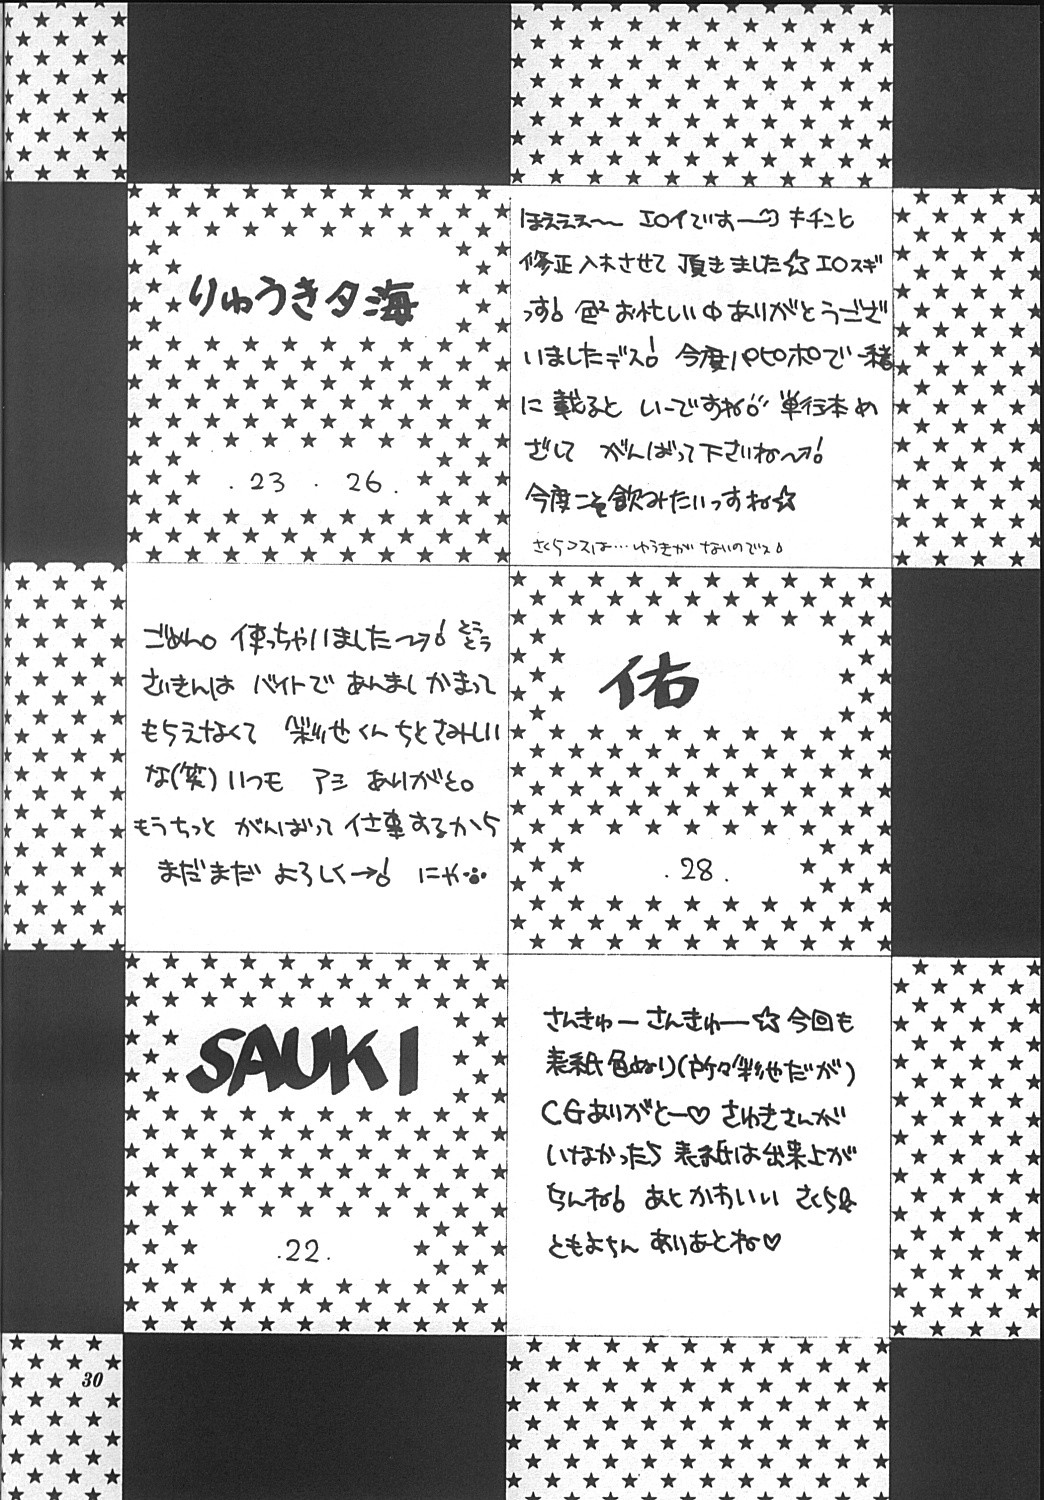 りゅうき夕海
.23 . 26.
ほええぇ〜 エロイですー♡ キチンと
修正入れさせて 頂きました☆ エロスギ
っす! 色々お忙しい中ありがとうござ
いましたデス! 今度パピポで一緒
に 載ると いーですね♪ 単行本め
ざして がんばって下さいね〜!
今度こそ飲みたいっすね☆
さくらコスは…ゆうきがないのでス!
ごめん。使っちゃいました〜! とうとう
さいきんは バイトで あんましかまって
もらえなくて 彩世くんちとさみしい
な(笑) いつも アシ ありがと。
もうちっと がんばって 仕事するから
まだまだ よろしく→! にゃ
佑
.28.
SAUKI
.22.
さんきゅー さんきゅー☆ 今回も
表紙色ぬり(所々彩世だが)
CGありがとー♡ さゆきさんが
いなかったら 表紙は出来上が
らんね! あと かわいい さくら&
ともよちん ありあとね♡
30